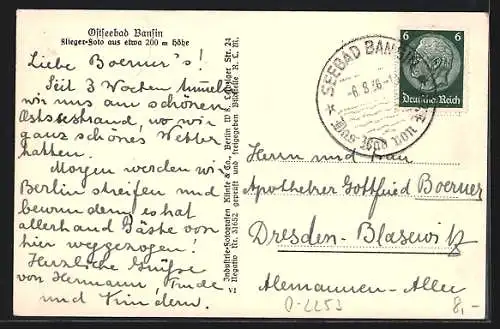 Ostseebad Bansin
Flieger-Foto aus etwa 200 m Höhe
Liebe Boerner's!
Seit 3 Wochen tummeln
wir uns am schönen
Ostseestrand, wo wir
ganz schönes Wetter
hatten.
Morgen werden wir
Berlin streifen und
bewundern, es hat
allerhand Gäste von
hier weggezogen!
Herzliche Grüße
von Hermann, Trude
und Kindern.
Industrie-Fotografen Klinke & Co., Berlin W 8, Leipziger Str. 24
Negativ Nr. 31652 geprüft und freigegeben Bildstelle R. L. M.
SEEBAD BANSIN
-6.8.36-
Das Bad von
6 6
Deutsches Reich
Herrn und Frau
Apotheker Gottfried Boerner
Dresden-Blasewitz
Alemannen-Allee
0-2253
8,-